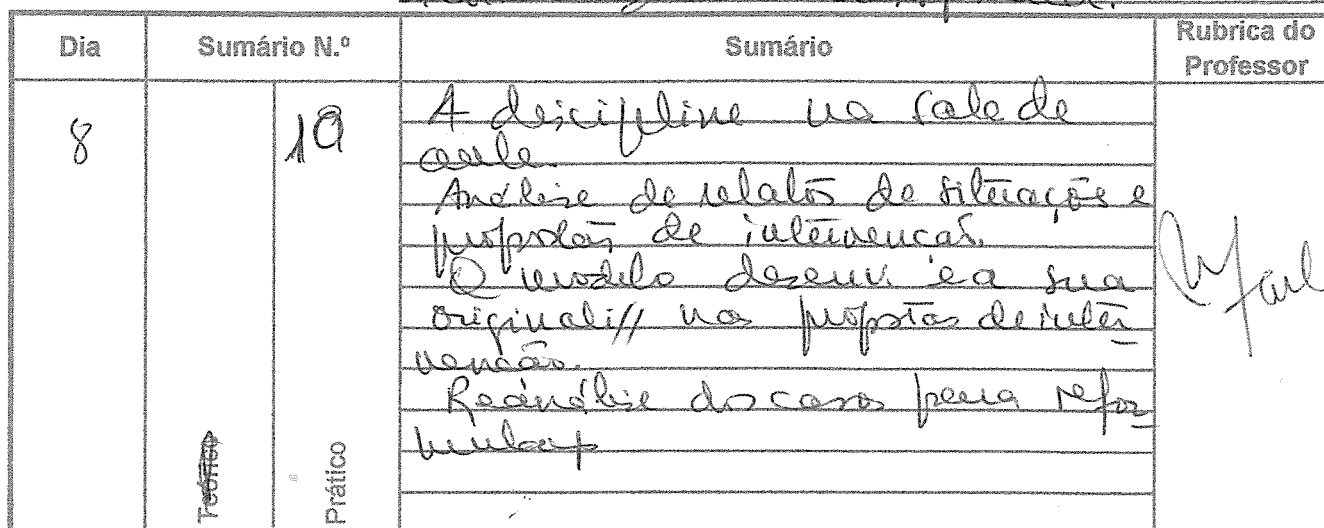 Dia Sumário N.º Sumário Rubrica do Professor
8 19 A disciplina na sala de
aula.
Análise de relatos de situações e
propostas de intervenção.
O modelo desenv. e a sua
originali// nas propostas de inter
venção.
Reanálise dos casos para refor
mulaç
Teórico Prático